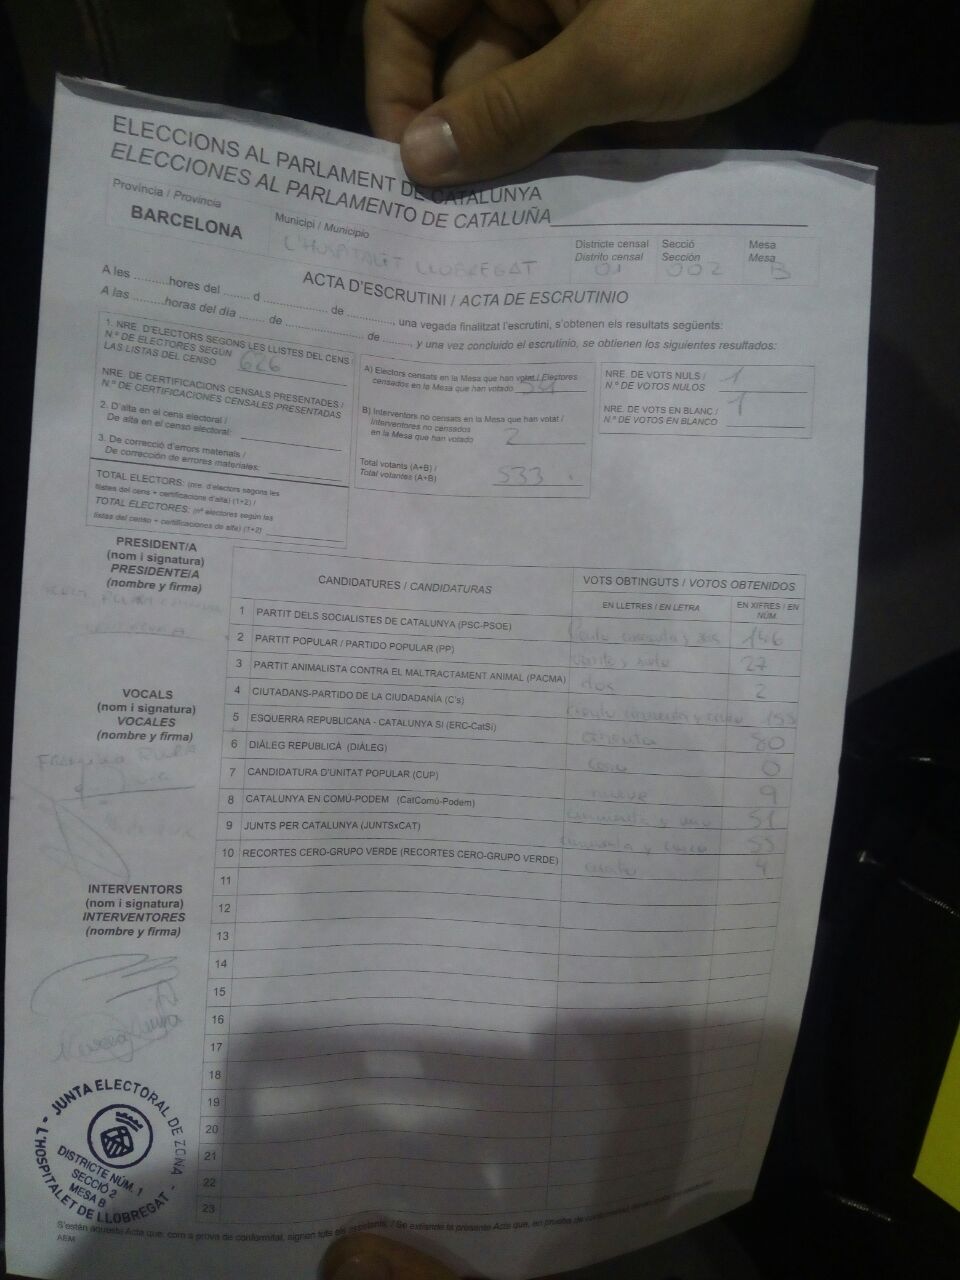 ELECCIONS AL PARLAMENT DE CATALUNYA
ELECCIONES AL PARLAMENTO DE CATALUÑA
Província / Provincia
BARCELONA
Municipi / Municipio
L'HOSPITALET LLOBREGAT
Districte censal
Distrito censal
01
Secció
Sección
002
Mesa
Mesa
B
ACTA D'ESCRUTINI / ACTA DE ESCRUTINIO
A les ..........hores del ........ d .................... de .............., una vegada finalitzat l'escrutini, s'obtenen els resultats següents:
A las ..........horas del día ........ de ........................ de ........, y una vez concluido el escrutinio, se obtienen los siguientes resultados:
1. NRE. D'ELECTORS SEGONS LES LLISTES DEL CENS /
N.º DE ELECTORES SEGÚN
LAS LISTAS DEL CENSO
626
NRE. DE CERTIFICACIONS CENSALS PRESENTADES /
N.º DE CERTIFICACIONES CENSALES PRESENTADAS
2. D'alta en el cens electoral /
De alta en el censo electoral:
3. De correcció d'errors materials /
De corrección de errores materiales:
TOTAL ELECTORS: (nre. d'electors segons les
llistes del cens + certificacions d'alta) (1+2) /
TOTAL ELECTORES: (nº electores según las
listas del censo + certificaciones de alta) (1+2)
A) Electors censats en la Mesa que han votat / Electores
censados en la Mesa que han votado 531
B) Interventors no censats en la Mesa que han votat /
Interventores no censados
en la Mesa que han votado
2
Total votants (A+B) /
Total votantes (A+B)
533
NRE. DE VOTS NULS /
N.º DE VOTOS NULOS
1
NRE. DE VOTS EN BLANC /
N.º DE VOTOS EN BLANCO
1
PRESIDENT/A
(nom i signatura)
PRESIDENTE/A
(nombre y firma)
VOCALS
(nom i signatura)
VOCALES
(nombre y firma)
INTERVENTORS
(nom i signatura)
INTERVENTORES
(nombre y firma)
CANDIDATURES / CANDIDATURAS
VOTS OBTINGUTS / VOTOS OBTENIDOS
EN LLETRES / EN LETRA
EN XIFRES / EN NÚM.
1 PARTIT DELS SOCIALISTES DE CATALUNYA (PSC-PSOE) 146
2 PARTIT POPULAR / PARTIDO POPULAR (PP) veinte y siete 27
3 PARTIT ANIMALISTA CONTRA EL MALTRACTAMENT ANIMAL (PACMA) dos 2
4 CIUTADANS-PARTIDO DE LA CIUDADANÍA (C's) ciento cincuenta y cinco 155
5 ESQUERRA REPUBLICANA - CATALUNYA SÍ (ERC-CatSí) 80
6 DIÀLEG REPUBLICÀ (DIÀLEG) cero 0
7 CANDIDATURA D'UNITAT POPULAR (CUP) nueve 9
8 CATALUNYA EN COMÚ-PODEM (CatComú-Podem) cincuenta y uno 51
9 JUNTS PER CATALUNYA (JUNTSxCAT)
10 RECORTES CERO-GRUPO VERDE (RECORTES CERO-GRUPO VERDE) cuatro 4
11
12
13
14
15
16
17
18
19
20
21
22
23
JUNTA ELECTORAL DE ZONA
L'HOSPITALET DE LLOBREGAT
DISTRICTE NÚM. 1
SECCIÓ 2
MESA B
S'estén aquesta Acta que, com a prova de conformitat, signen tots els assistents. / Se extiende la presente Acta que, en prueba de conformidad,
AEM